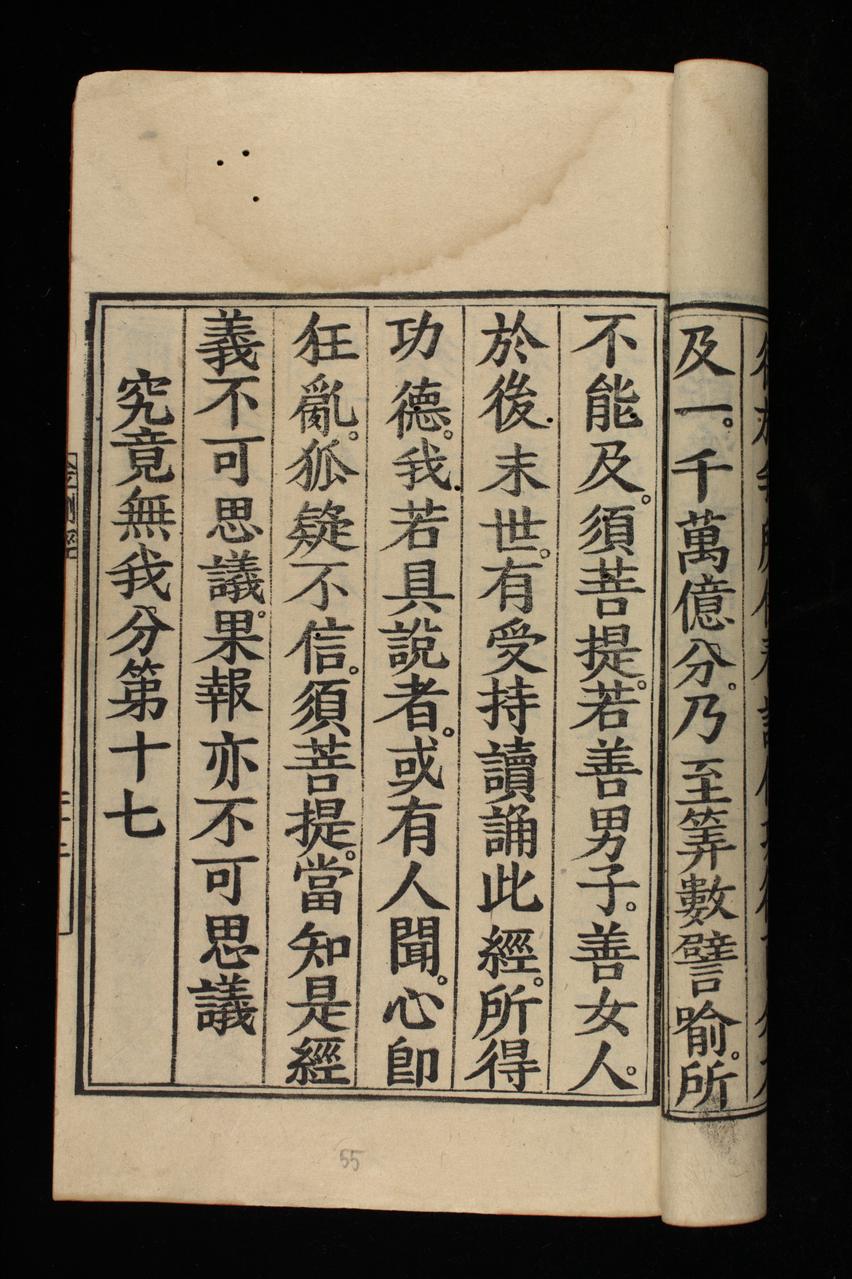 及一。千萬億分。乃至筭數譬喻。所
不能及。須菩提。若善男子。善女人。
於後末世。有受持讀誦此經。所得
功德。我若具說者。或有人聞。心卽
狂亂。狐疑不信。須菩提。當知是經
義不可思議。果報亦不可思議
究竟無我分第十七
金剛經
55